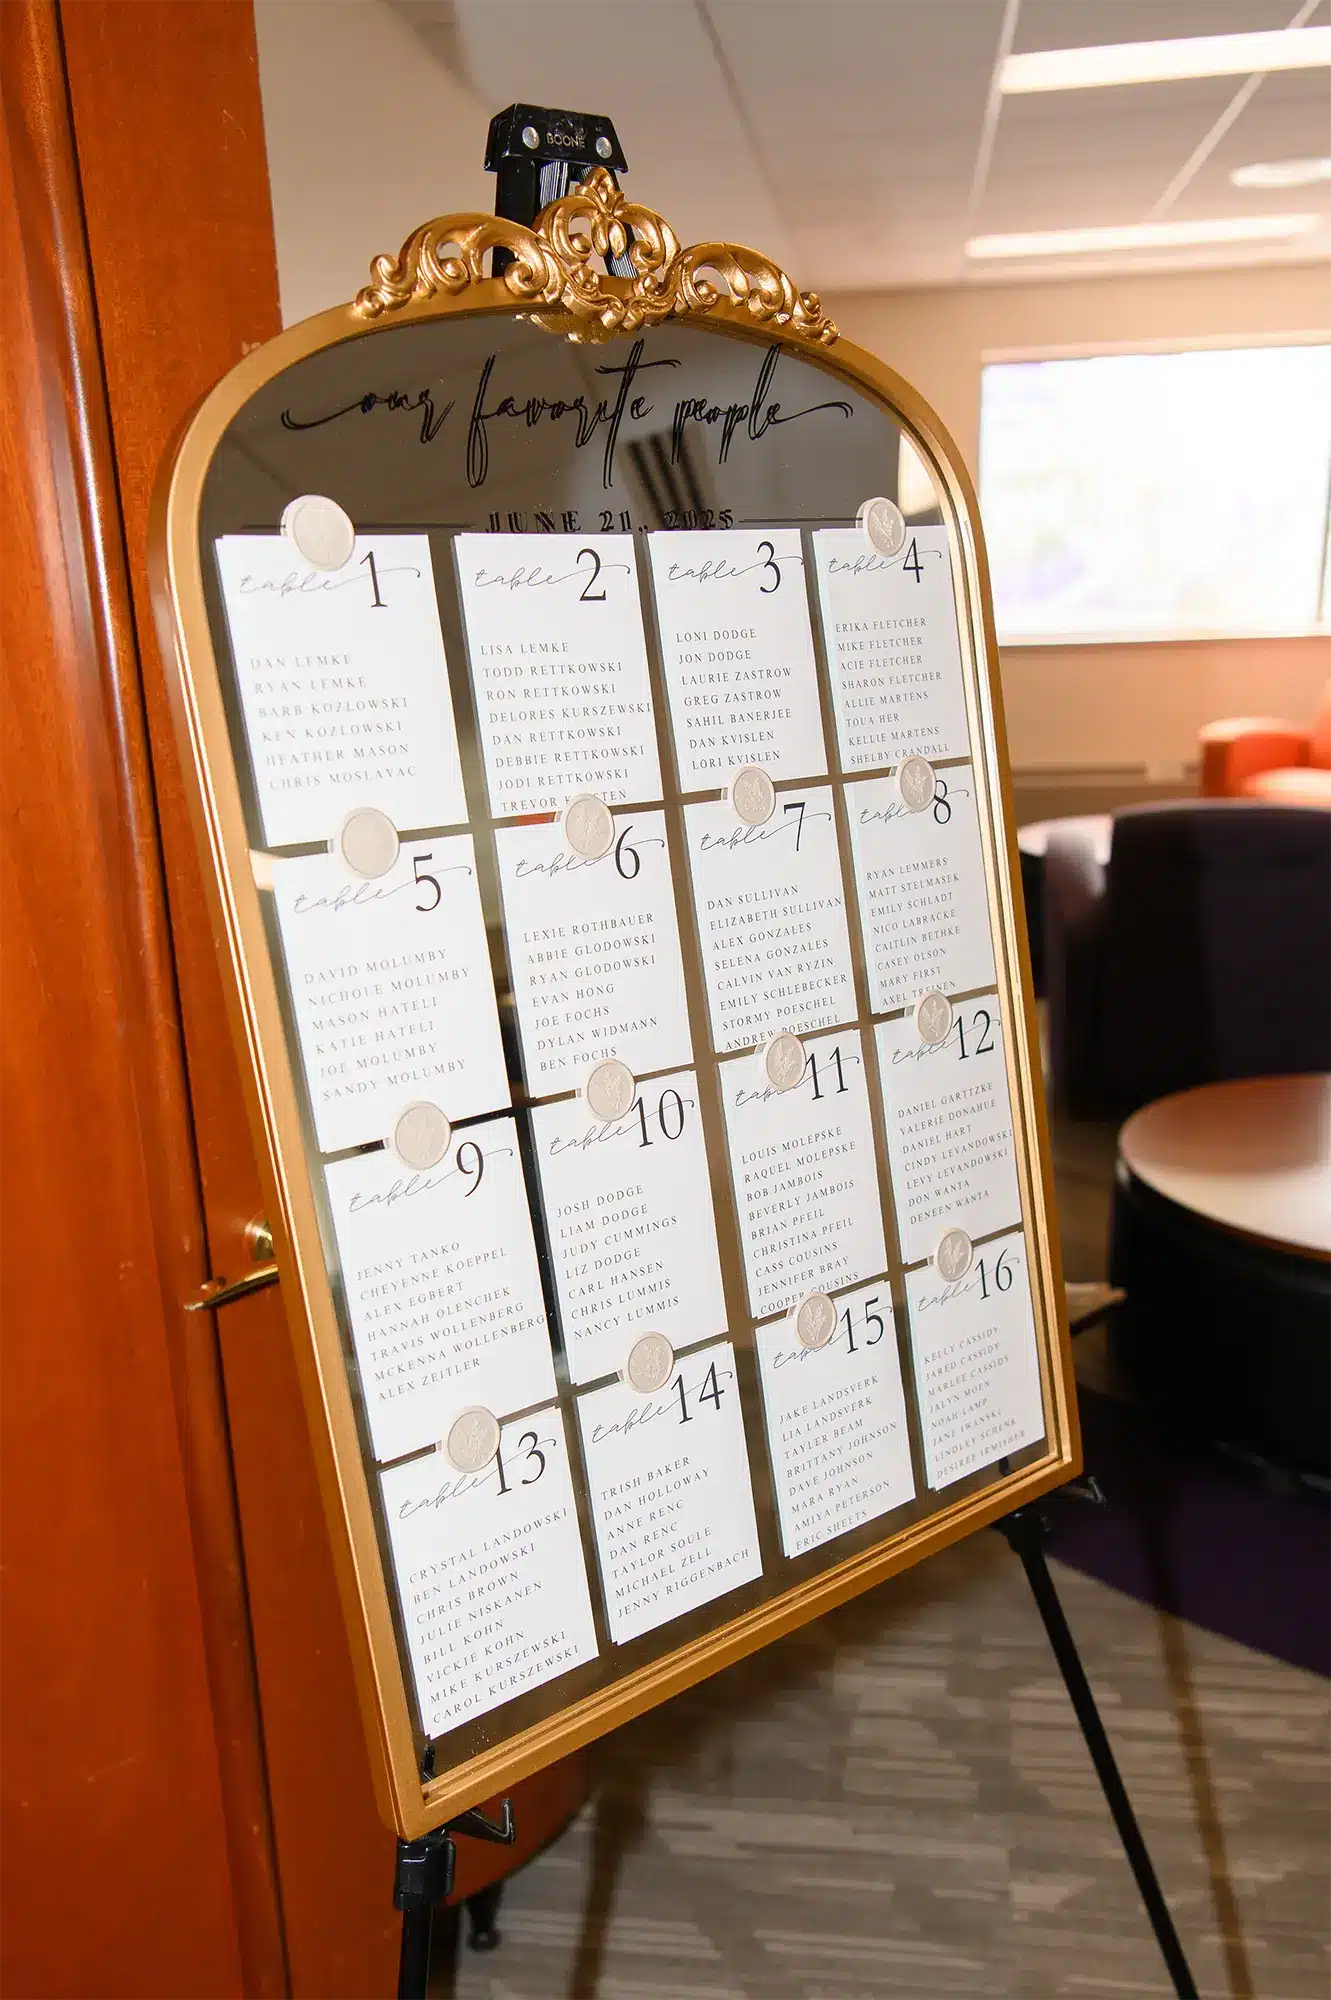 BOONE
our favorite people
JUNE 21, 2025
table 1
DAN LEMKE
RYAN LEMKE
BARB KOZLOWSKI
KEN KOZLOWSKI
HEATHER MASON
CHRIS MOSLAVAC
table 2
LISA LEMKE
TODD RETTKOWSKI
RON RETTKOWSKI
DELORES KURSZEWSKI
DAN RETTKOWSKI
DEBBIE RETTKOWSKI
JODI RETTKOWSKI
TREVOR
table 3
LONI DODGE
JON DODGE
LAURIE ZASTROW
GREG ZASTROW
SAHIL BANERJEE
DAN KVISLEN
LORI KVISLEN
table 4
ERIKA FLETCHER
MIKE FLETCHER
ACIE FLETCHER
SHARON FLETCHER
ALLIE MARTENS
TOUA HER
KELLIE MARTENS
SHELBY CRANDALL
table 5
DAVID MOLUMBY
NICHOLE MOLUMBY
MASON HATELI
KATIE HATELI
JOE MOLUMBY
SANDY MOLUMBY
table 6
LEXIE ROTHBAUER
ABBIE GLODOWSKI
RYAN GLODOWSKI
EVAN HONG
JOE FOCHS
DYLAN WIDMANN
BEN FOCHS
table 7
DAN SULLIVAN
ELIZABETH SULLIVAN
ALEX GONZALES
SELENA GONZALES
CALVIN VAN RYZIN
EMILY SCHLEBECKER
STORMY POESCHEL
ANDREW POESCHEL
table 8
RYAN LEMMERS
MATT STELMASEK
EMILY SCHLADT
NICO LABRACKE
CAITLIN BETHKE
CASEY OLSON
MARY FIRST
AXEL TREINEN
table 9
JENNY TANKO
CHEYENNE KOEPPEL
ALEX EGBERT
HANNAH OLENCHEK
TRAVIS WOLLENBERG
MCKENNA WOLLENBERG
ALEX ZEITLER
table 10
JOSH DODGE
LIAM DODGE
JUDY CUMMINGS
LIZ DODGE
CARL HANSEN
CHRIS LUMMIS
NANCY LUMMIS
table 11
LOUIS MOLEPSKE
RAQUEL MOLEPSKE
BOB JAMBOIS
BEVERLY JAMBOIS
BRIAN PFEIL
CHRISTINA PFEIL
CASS COUSINS
JENNIFER BRAY
COOPER COUSINS
table 12
DANIEL GARTTZKE
VALERIE DONAHUE
DANIEL HART
CINDY LEVANDOWSKI
LEVY LEVANDOWSKI
DON WANTA
DENEEN WANTA
table 13
CRYSTAL LANDOWSKI
BEN LANDOWSKI
CHRIS BROWN
JULIE NISKANEN
BILL KOHN
VICKIE KOHN
MIKE KURSZEWSKI
CAROL KURSZEWSKI
table 14
TRISH BAKER
DAN HOLLOWAY
ANNE RENC
DAN RENC
TAYLOR SOULE
MICHAEL ZELL
JENNY RIGGENBACH
table 15
JAKE LANDSVERK
LIA LANDSVERK
TAYLER BEAM
BRITTANY JOHNSON
DAVE JOHNSON
MARA RYAN
AMIYA PETERSON
ERIC SHEETS
table 16
KELLY CASSIDY
JARED CASSIDY
MARLEE CASSIDY
JALYN MOEN
NOAH LAMP
JANE IWANSKI
LINDLEY SCHENK
DESIREE IRMISHER